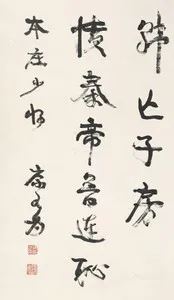 韓亡子房
憤秦帝魯連恥
本庄少將
康有為